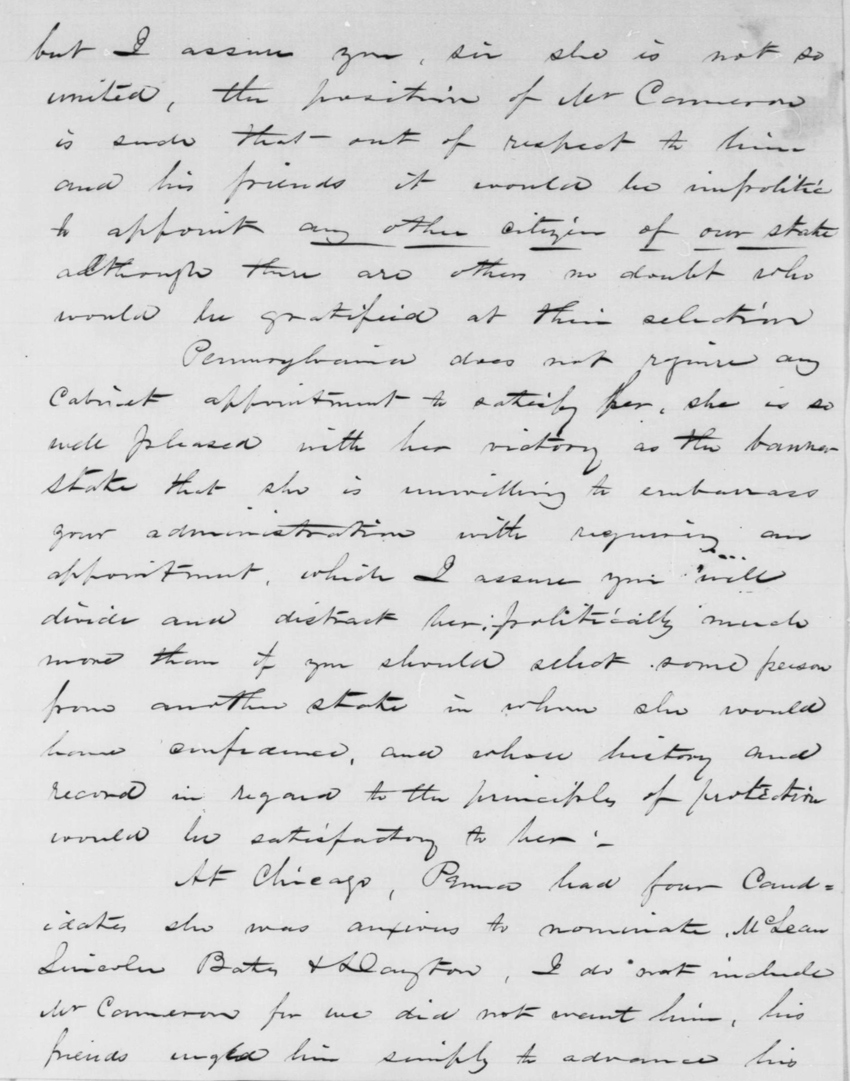 but I assure you, sir she is not so
united, the position of Mr Cameron
is such that out of respect to him
and his friends it would be impolitic
to appoint any other citizen of our state
although there are others no doubt who
would be gratified at their selection
Pennsylvania does not require any
Cabinet appointment to satisfy her, she is so
well pleased with her victory as the banner
state that she is unwilling to embarrass
your administration with requiring an
appointment, which I assure you will
divide and distract her politically much
more than if you should select some person
from another state in whom she would
have confidence, and whose history and
record in regard to the principles of protection
would be satisfactory to her. -
At Chicago, Penna had four Cand=
idates she was anxious to nominate, McLean
Lincoln Bates & Dayton, I do not include
Mr Cameron for we did not want him, his
friends urged him simply to advance his